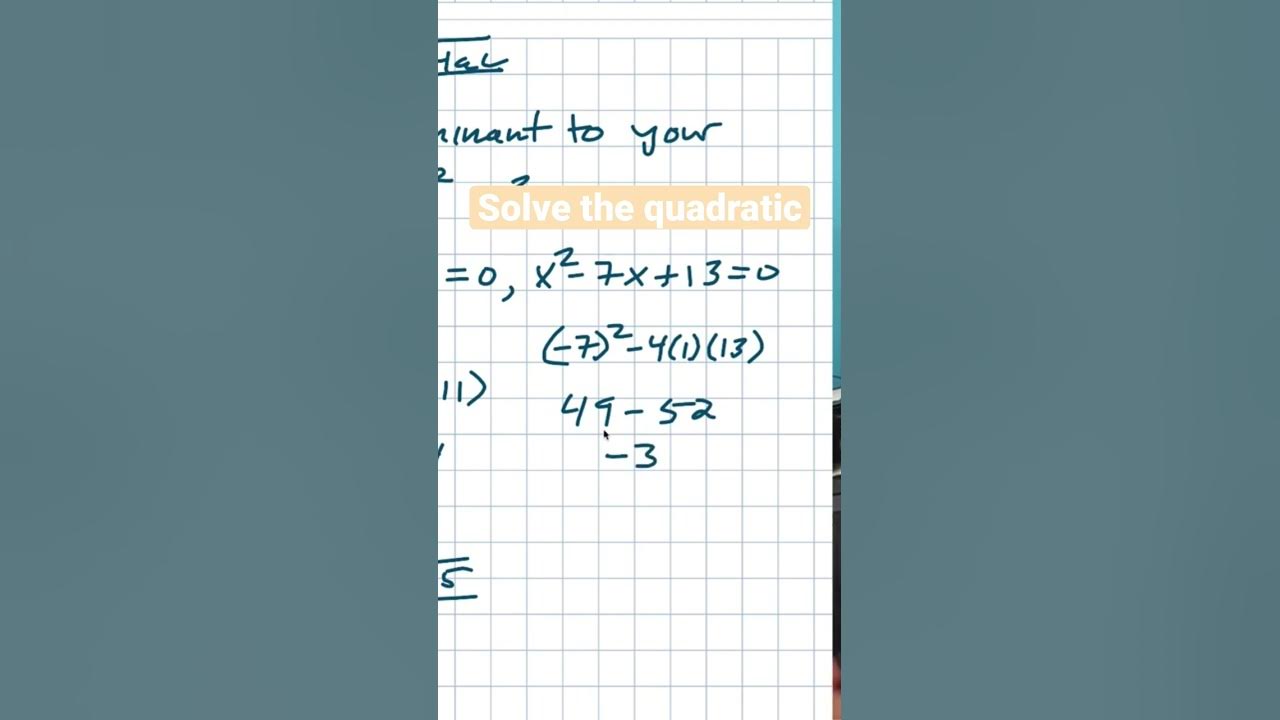 to your
Solve the quadratic
=0, x²-7x+13=0
(-7)²-4(1)(13)
11)
49-52
-3
5